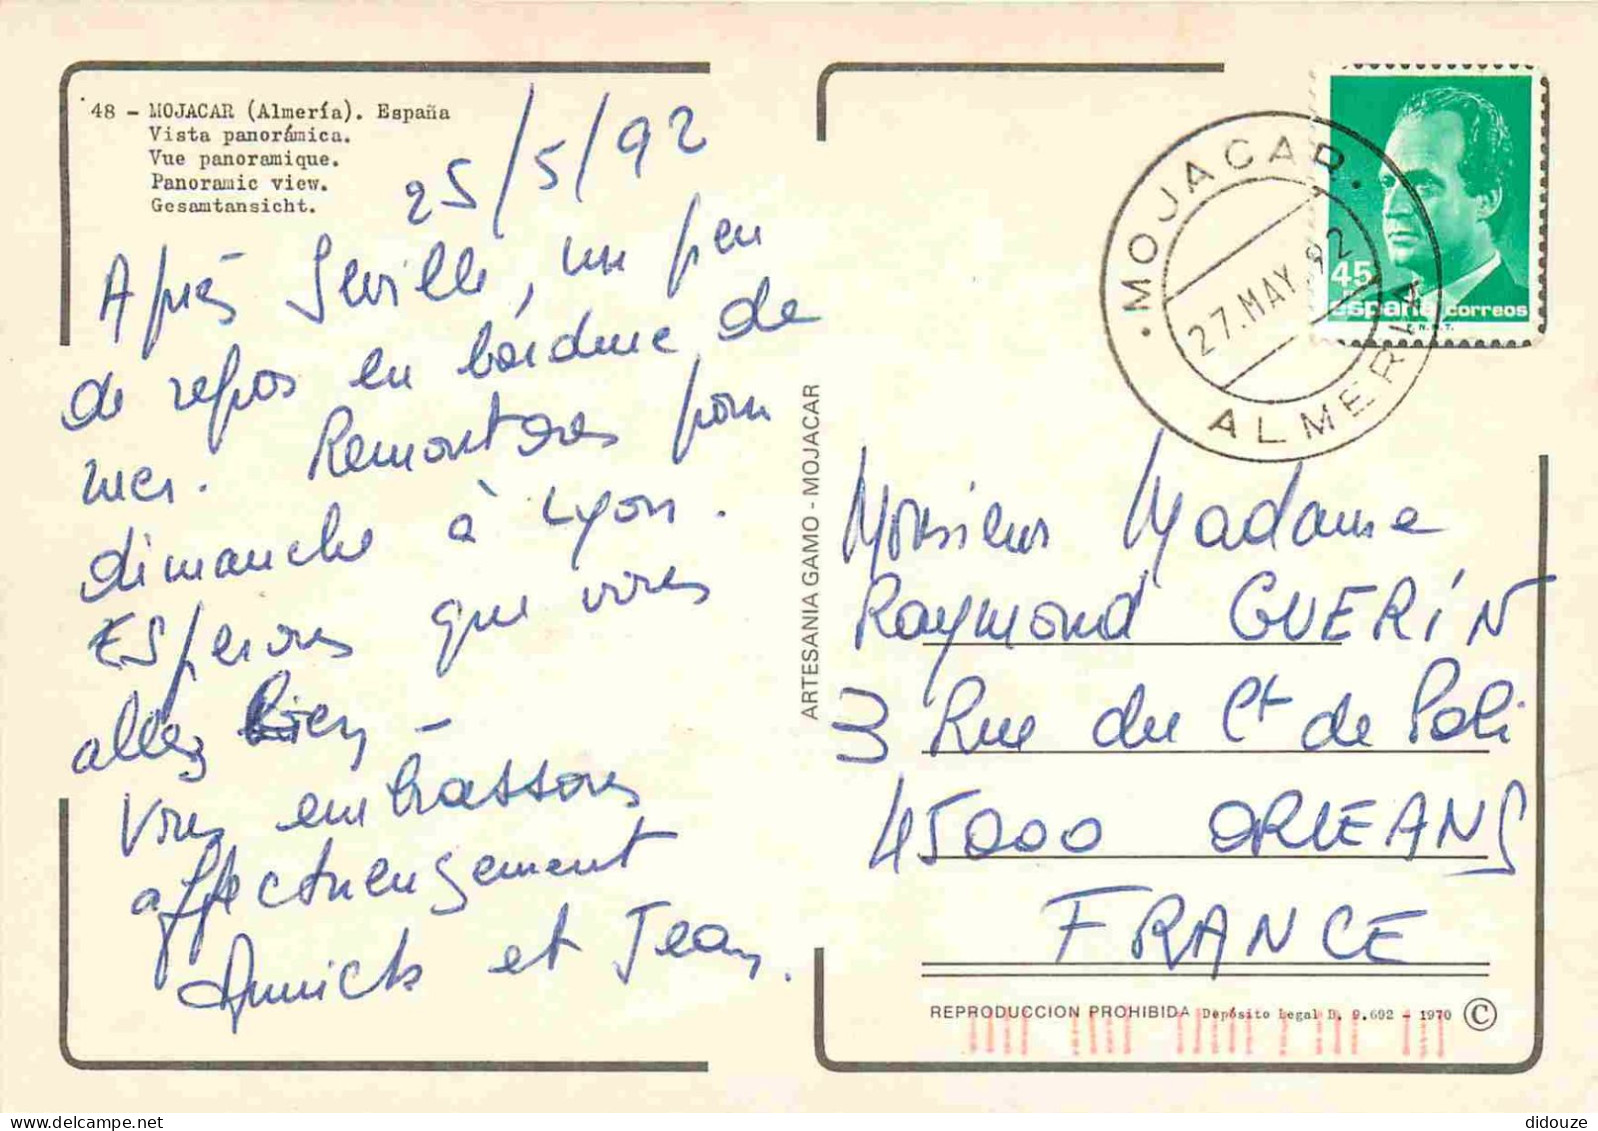 48 - MOJACAR (Almería). España
Vista panorámica.
Vue panoramique.
Panoramic view.
Gesamtansicht.
25/5/92
Après Seville, un peu
de repos en bordure de
mer. Remontons pour
dimanche à Lyon.
Espérons que vous
allez bien -
Vous embrassons
affectueusement
Annick et Jean.
ARTESANIA GAMO - MOJACAR
· MOJACAR ·
27. MAY. 92
ALMERIA
45
españa correos
F.N.M.T.
Monsieur Madame
Raymond GUERIN
3 Rue du Ct de Poli
45000 ORLEANS
FRANCE
REPRODUCCION PROHIBIDA Depósito Legal B. 9.692 - 1970 ©
didouze